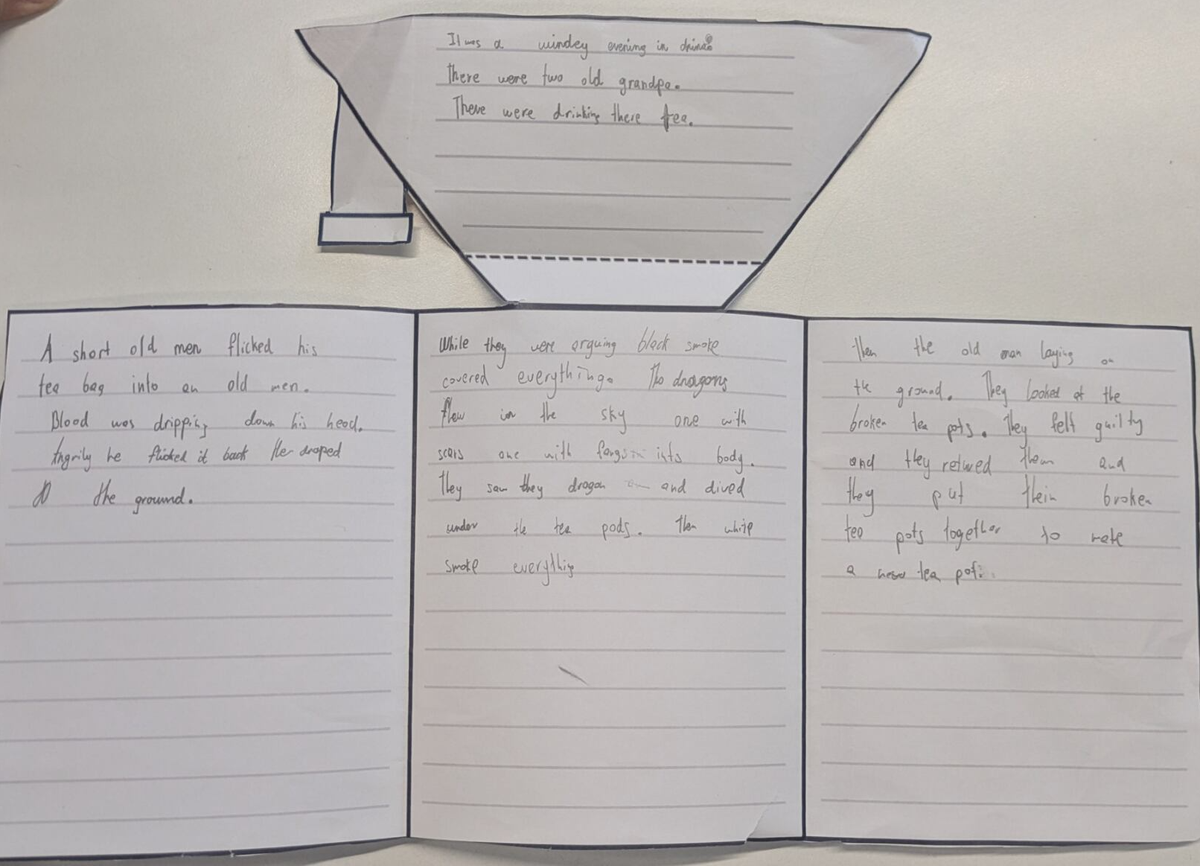 It was a windey evening in
There were two old grandpa.
There were drinking there tea.
A short old men flicked his
tea bag into an old men.
Blood was dripping down his head.
Angrily he flicked it back
the ground.
While they were arguing black smoke
covered everything. The dragons
flew in the sky one with
scars one with into body.
They saw they dragon and dived
under the tea pods. Then white
smoke everything
Then the old man laying on
the ground. They looked at the
broken tea pots. They felt guilty
and they them and
they put their broken
tea pots together to
a tea pot.